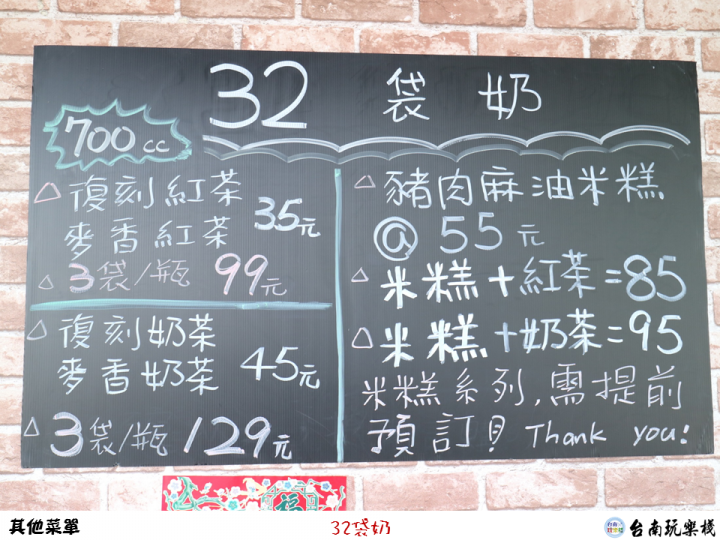 32 袋 奶
700cc
△ 復刻紅茶
麥香紅茶 35元
△ 3袋/瓶 99元
△ 復刻奶茶
麥香奶茶 45元
△ 3袋/瓶 129元
△ 豬肉麻油米糕
@ 55元
△ 米糕+紅茶=85
△ 米糕+奶茶=95
米糕系列,需提前
預訂! Thank you!
福
其他菜單
32袋奶
台南玩樂棧